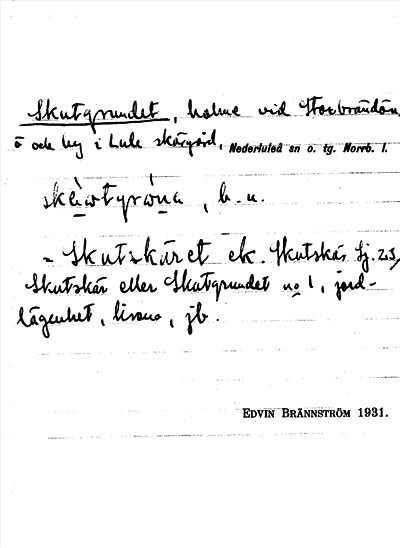 Skutgrundet, holme vid Storbrändön,
ö och by i Lule skärgård, Nederluleå sn o. tg. Norrb. l.
b. u.
= Skutskäret ek. Skutskär Sj. 23,
Skutskär eller Skutgrundet no 1, jord-
lägenhet, jb.
EDVIN BRÄNNSTRÖM 1931.